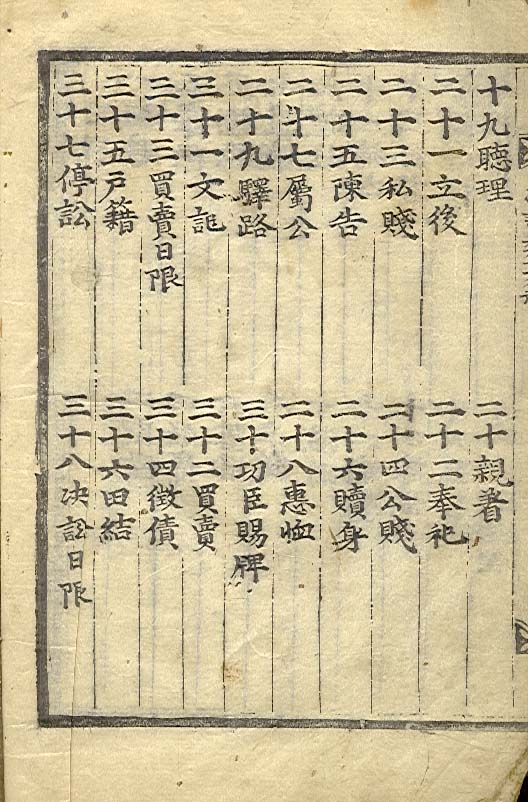 十九聽理
二十親着
二十一立後
二十二奉祀
二十三私賤
二十四公賤
二十五陳告
二十六贖身
二十七屬公
二十八惠恤
二十九驛路
三十功臣賜牌
三十一文記
三十二買賣
三十三買賣日限
三十四徵債
三十五戶籍
三十六田結
三十七停訟
三十八决訟日限